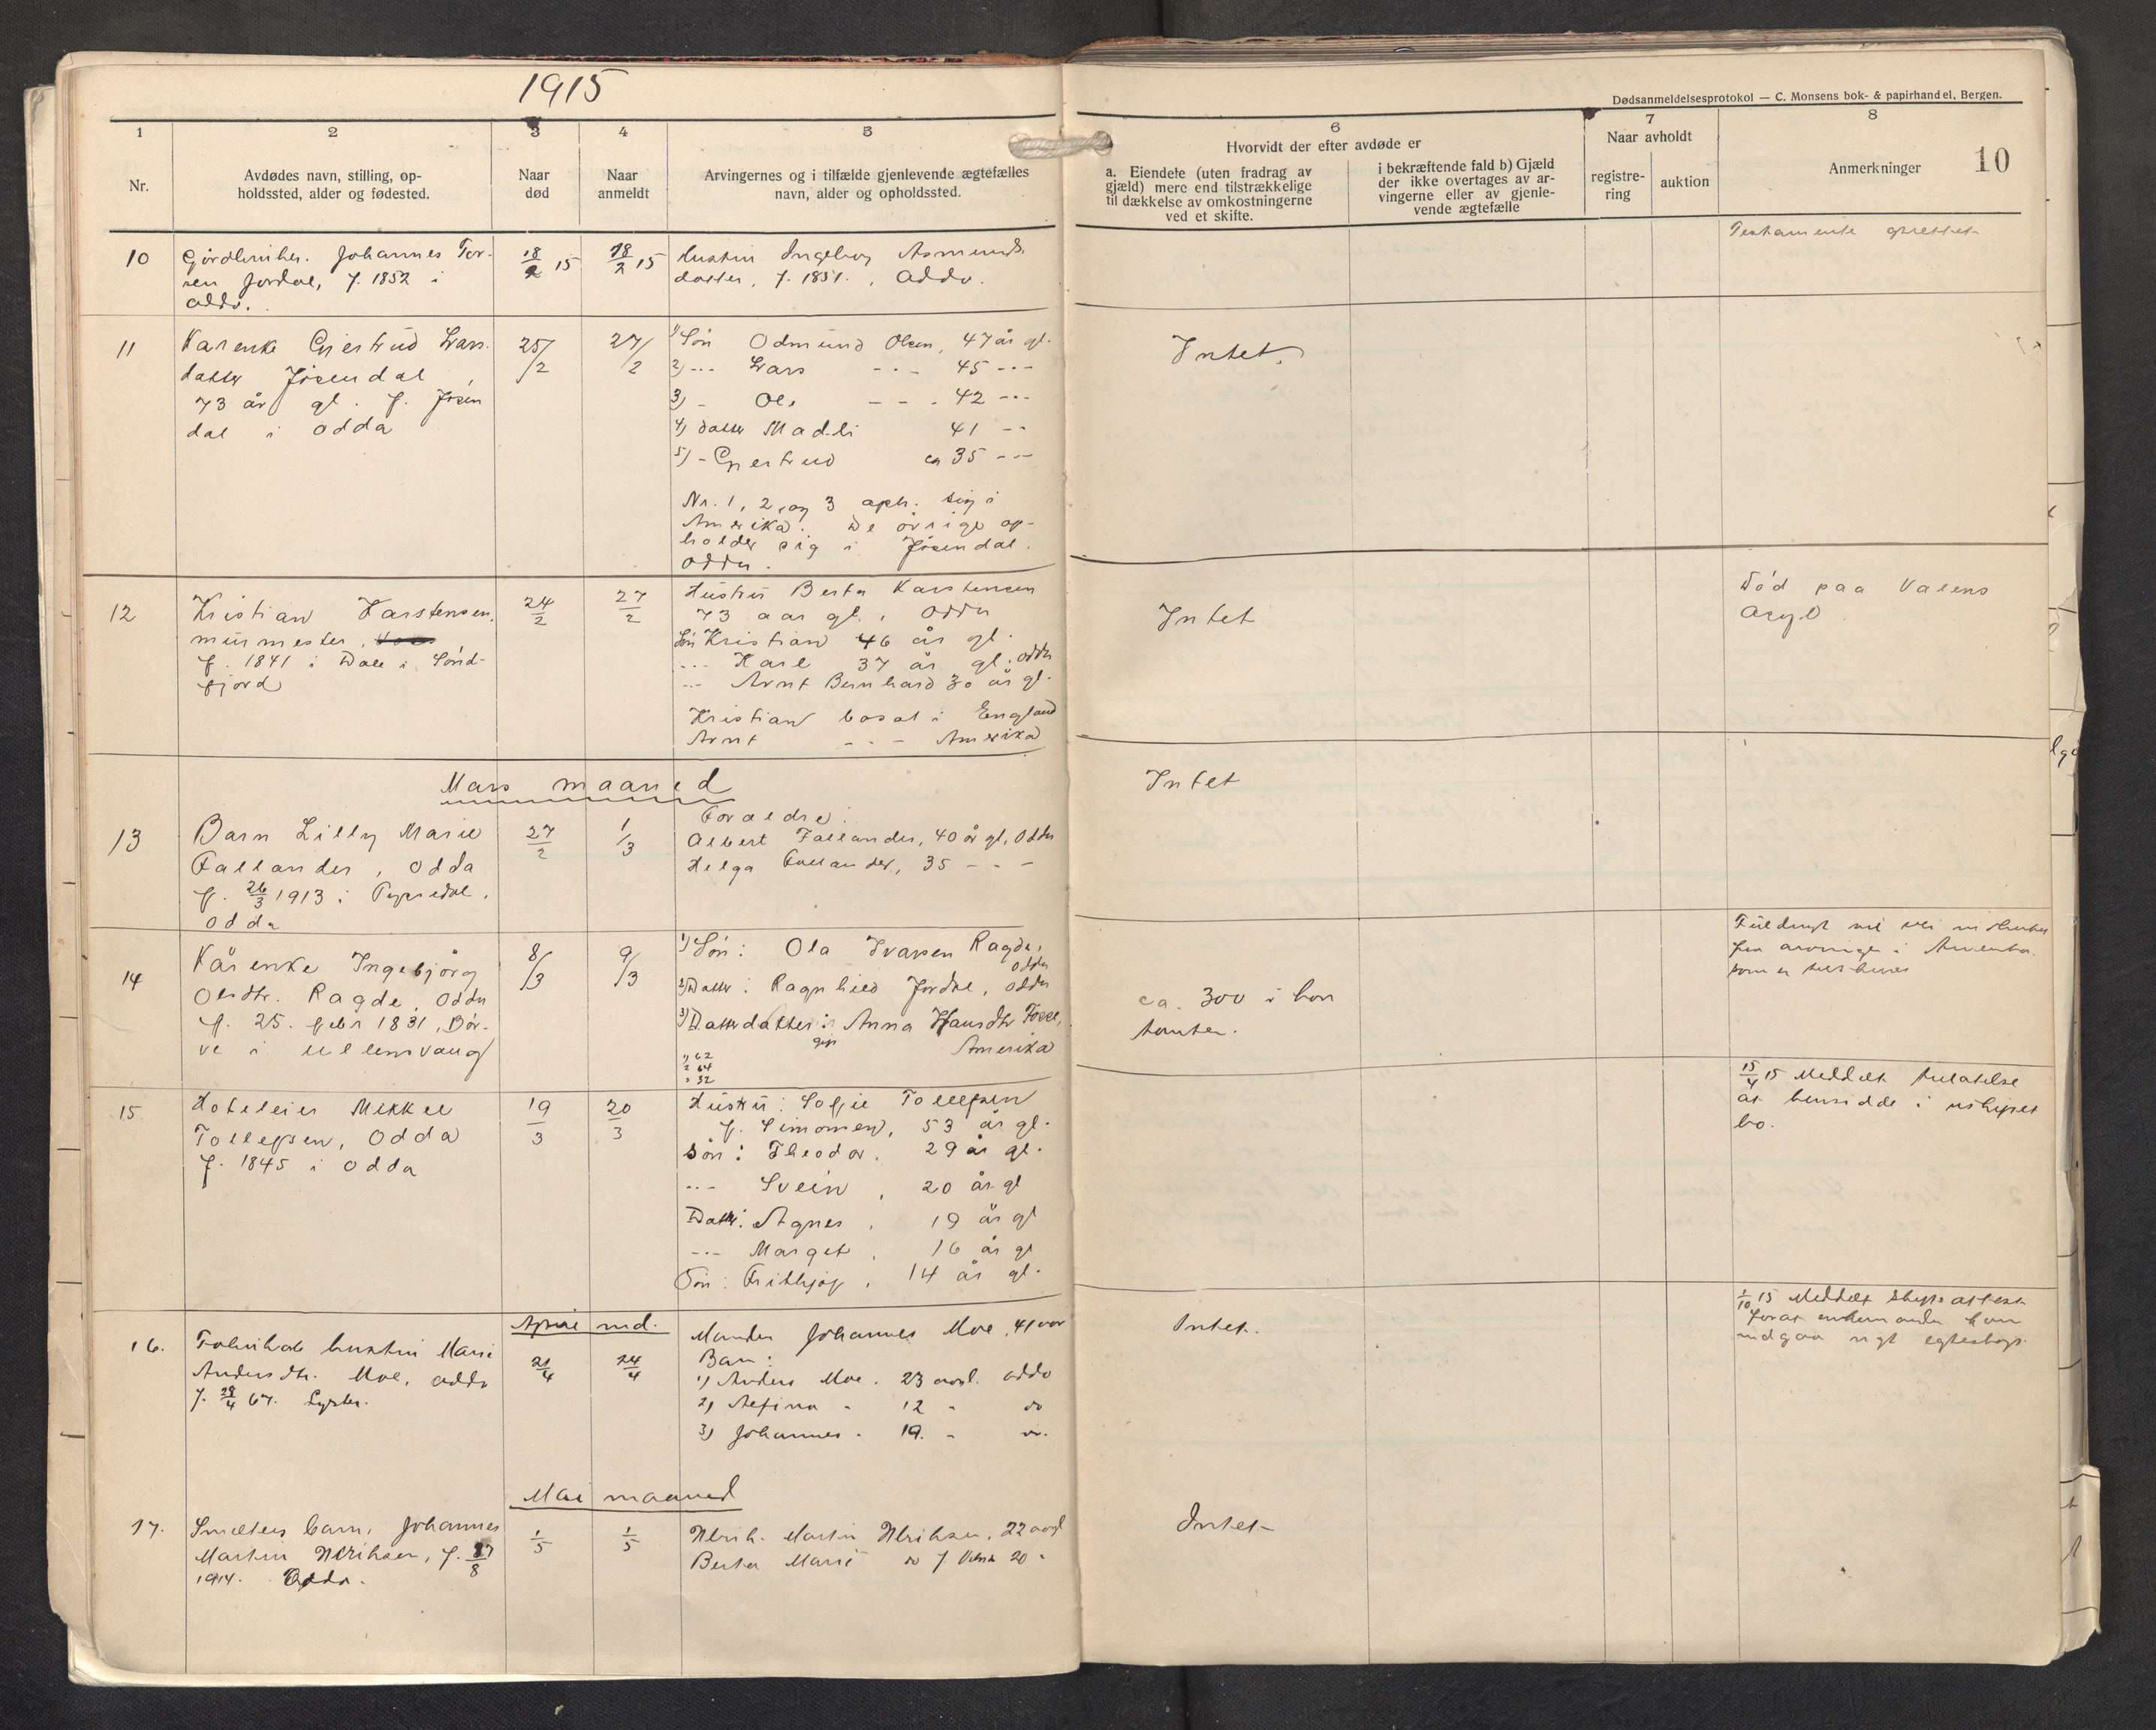 1915
Dødsanmeldelsesprotokol — C. Monsens bok- & papirhandel, Bergen.
10
1
2
3
4
5
6
7
8
Nr.
Avdødes navn, stilling, op-
holdssted, alder og fødested.
Naar
død
Naar
anmeldt
Arvingernes og i tilfælde gjenlevende ægtefælles
navn, alder og opholdssted.
Hvorvidt der efter avdøde er
a. Eiendele (uten fradrag av
gjæld) mere end tilstrækkelige
til dækkelse av omkostningerne
ved et skifte.
i bekræftende fald b) Gjæld
der ikke overtages av ar-
vingerne eller av gjenle-
vende ægtefælle
Naar avholdt
registre-
ring
auktion
Anmerkninger
10
Johannes Tor-
sen Jordal, f. 1852 i
Odda.
18/2 15
18/2 15
Hustru Ingeborg Asmunds
datter, f. 1851, Odda.
Testamente oprettet
11
Karenke Gjertrud Lars-
datter Jøsendal,
73 år gl. f. Jøsen
dal i Odda
25/2
27/2
1) Søn Odmund Olsen, 47 år gl.
2) --- Lars --- 45 ---
3) - Ole --- 42 ---
4) Datter Madli 41 --
5) - Gjertrud ca 35 ---
Nr. 1, 2, og 3 oph. sig i
Amerika. De øvrige op-
holder sig i Jøsendal.
Odda.
Intet.
12
Kristian Karstensen,
murmester,
f. 1841 i Dale i Sønd-
fjord
24/2
27/2
Hustru Berta Karstensen
73 aar gl., Odda
Søn Kristian 46 år gl.
--- Karl 37 år gl. Odda
--- Arnt Bernhard 30 år gl.
Kristian bosat i England
Arnt --- Amerika
Intet
Død paa Valens
Asyl
Mars maaned
13
Barn Lilly Marie
Fallander, Odda
f. 26/3 1913 i
Odda
27/2
1/3
Forældre:
Albert Fallander, 40 år gl, Odda
Helga Fallander, 35 ---
Intet
14
Kårenke Ingebjørg
Olsdtr. Ragde, Odda
f. 25. febr 1831, Bør-
ve i Ullensvang
8/3
9/3
1) Søn: Ola Ivarsen Ragde,
Odda
2) Datter: Ragnhild Jordal, Odda
3) Datterdatter: Anna Hansdtr
Amerika
1) 62
2 64
3 32
ca. 300 i kon
tanter.
Fuldmagt vil
fra arvingen i Amerika
som er
15
Hoteleier Mikkel
Tollefsen, Odda
f. 1845 i Odda
19/3
20/3
Hustru: Sofie Tollefsen
f. Simonsen, 53 år gl.
Søn: Theodor, 29 år gl.
--- Svein, 20 år gl
Datter: Agnes, 19 år gl
--- Marget, 16 år gl
Søn: Frithjof, 14 år gl.
15/4 15 Meddelt tilladelse
at hensidde i uskiftet
bo.
April md.
16.
hustru Marie
Andersdtr. Moe, Odda
f. 28/4 67. Lyster.
21/4
24/4
Manden Johannes Moe, 41 aar
Barn:
1) Anders Moe, 23 aar gl. Odda
2) - 12 - do
3) Johannes - 19. - do.
Intet.
1/10 15 Meddelt skifteattest
forat enkemanden kan
indgaa nyt egteskap.
Mai maaned
17.
Smelters barn, Johannes
Martin Ulriksen, f. 27/8
1914. Odda.
1/5
1/5
Ulrik Martin Ulriksen, 22 aar gl
Berta Marie do f. 20 -
Intet